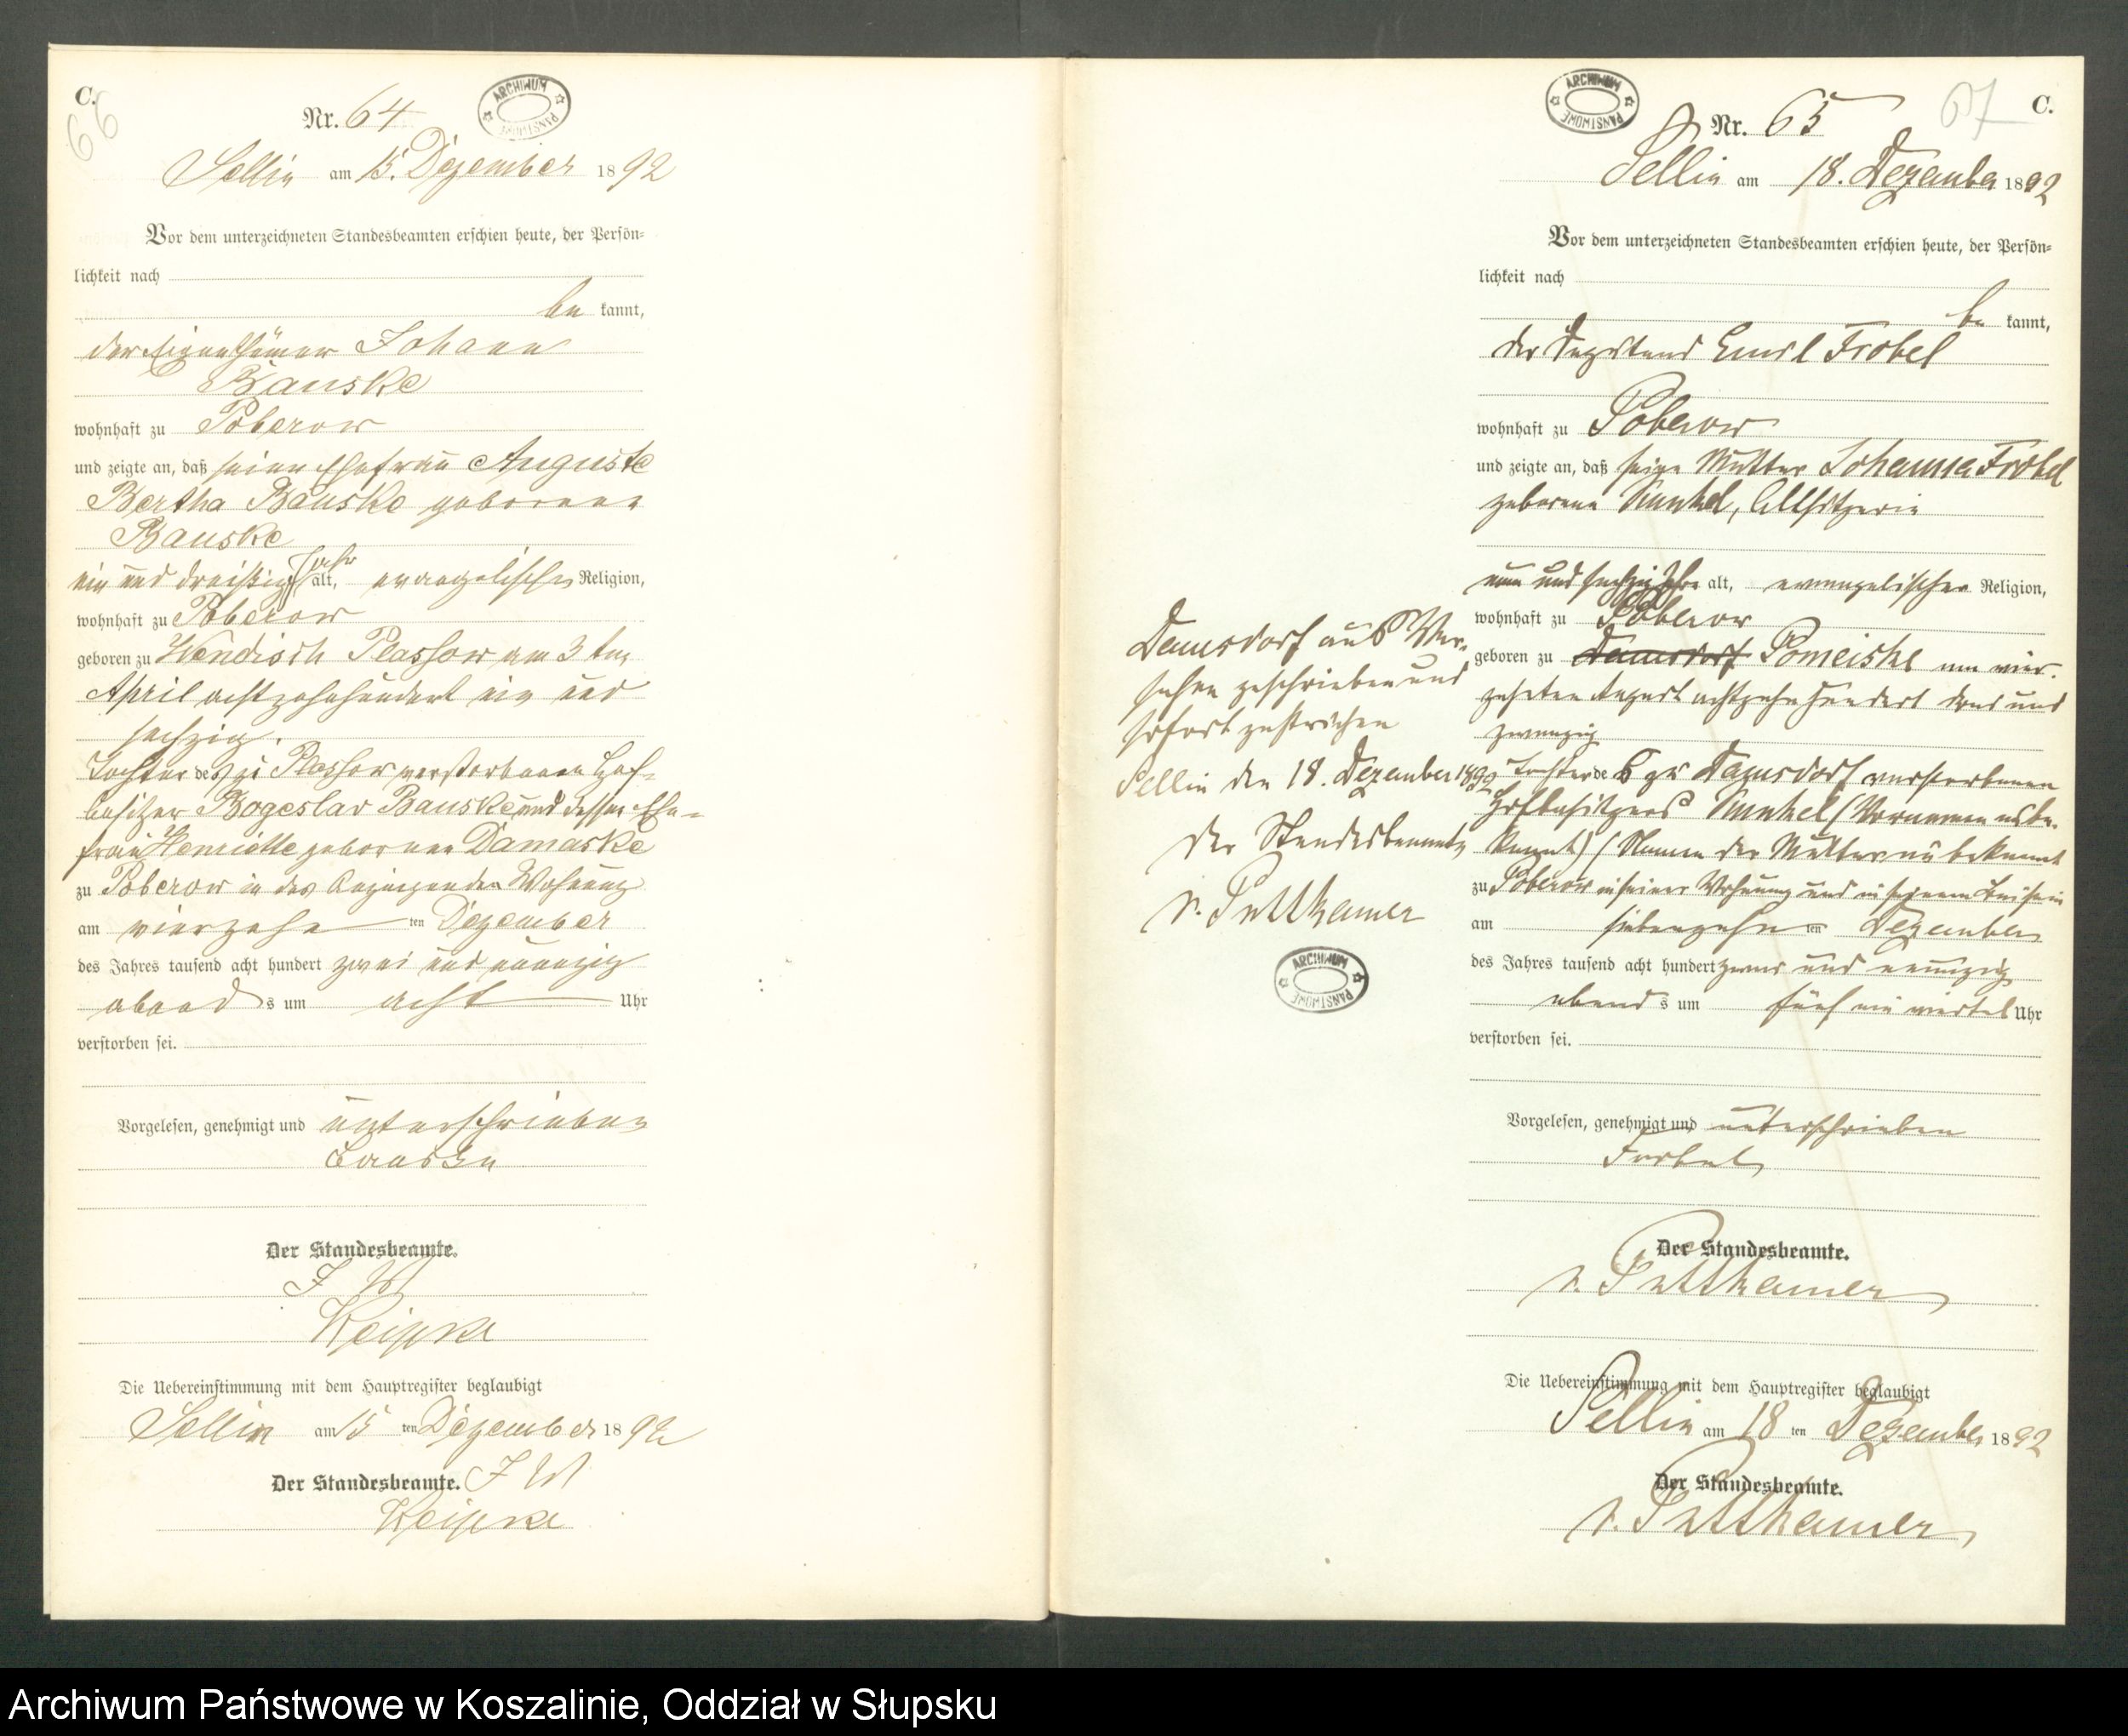 C.
66
Nr. 64
ARCHIWUM PAŃSTWOWE
Sellin am 15. Dezember 1892
Vor dem unterzeichneten Standesbeamten erschien heute, der Persön-
lichkeit nach
be kannt,
der Eigenthümer Johann
Bauske
wohnhaft zu Poberow
und zeigte an, daß seine Ehefrau Auguste
Bertha Bauske geborene
Bauske
ein und dreißig Jahr alt, evangelischer Religion,
wohnhaft zu Poberow
geboren zu Wendisch Plassow am 3 ten
April achtzehnhundert ein und
sechzig.
Tochter des zu Plassow verstorbenen Hof-
besitzer Bogeslav Bauske und dessen Ehe-
frau Henriette geborene Damaske
zu Poberow in der Wohnung
am vierzehn ten Dezember
des Jahres tausend acht hundert zwei und neunzig
abends um acht Uhr
verstorben sei.
Vorgelesen, genehmigt und unterschrieben
Bauske
Der Standesbeamte.
J V
Die Uebereinstimmung mit dem Hauptregister beglaubigt
Sellin am 15 ten Dezember 1892
Der Standesbeamte. J V
67
C.
ARCHIWUM PAŃSTWOWE
Nr. 65
Sellin am 18. Dezember 1892
Vor dem unterzeichneten Standesbeamten erschien heute, der Persön-
lichkeit nach
be kannt,
der Emil Frobel
wohnhaft zu Poberow
und zeigte an, daß seine Mutter Johanna Frobel
geborene Kunkel, Altsitzerin
neun und sechzig Jahre alt, evangelischer Religion,
wohnhaft zu Poberow
geboren zu Damsdorf Pomeiske am vier-
zehnten August achtzehnhundert drei und
zwanzig
Tochter des zu Damsdorf verstorbenen
Hofbesitzers Kunkel (Vornamen unbe-
kannt) (Namen der Mutter unbekannt
zu Poberow in seiner Wohnung und in seinem Beisein
am siebenzehn ten Dezember
des Jahres tausend acht hundert zwei und neunzig
abends um fünf ein viertel Uhr
verstorben sei.
Vorgelesen, genehmigt und unterschrieben
Frobel
Der Standesbeamte.
v. Puttkamer
Die Uebereinstimmung mit dem Hauptregister beglaubigt
Sellin am 18 ten Dezember 1892
Der Standesbeamte.
v. Puttkamer
Damsdorf aus Ver-
sehen geschrieben und
sofort gestrichen
Sellin den 18. Dezember 1892
Der Standesbeamte
v. Puttkamer
ARCHIWUM PAŃSTWOWE
Archiwum Państwowe w Koszalinie, Oddział w Słupsku